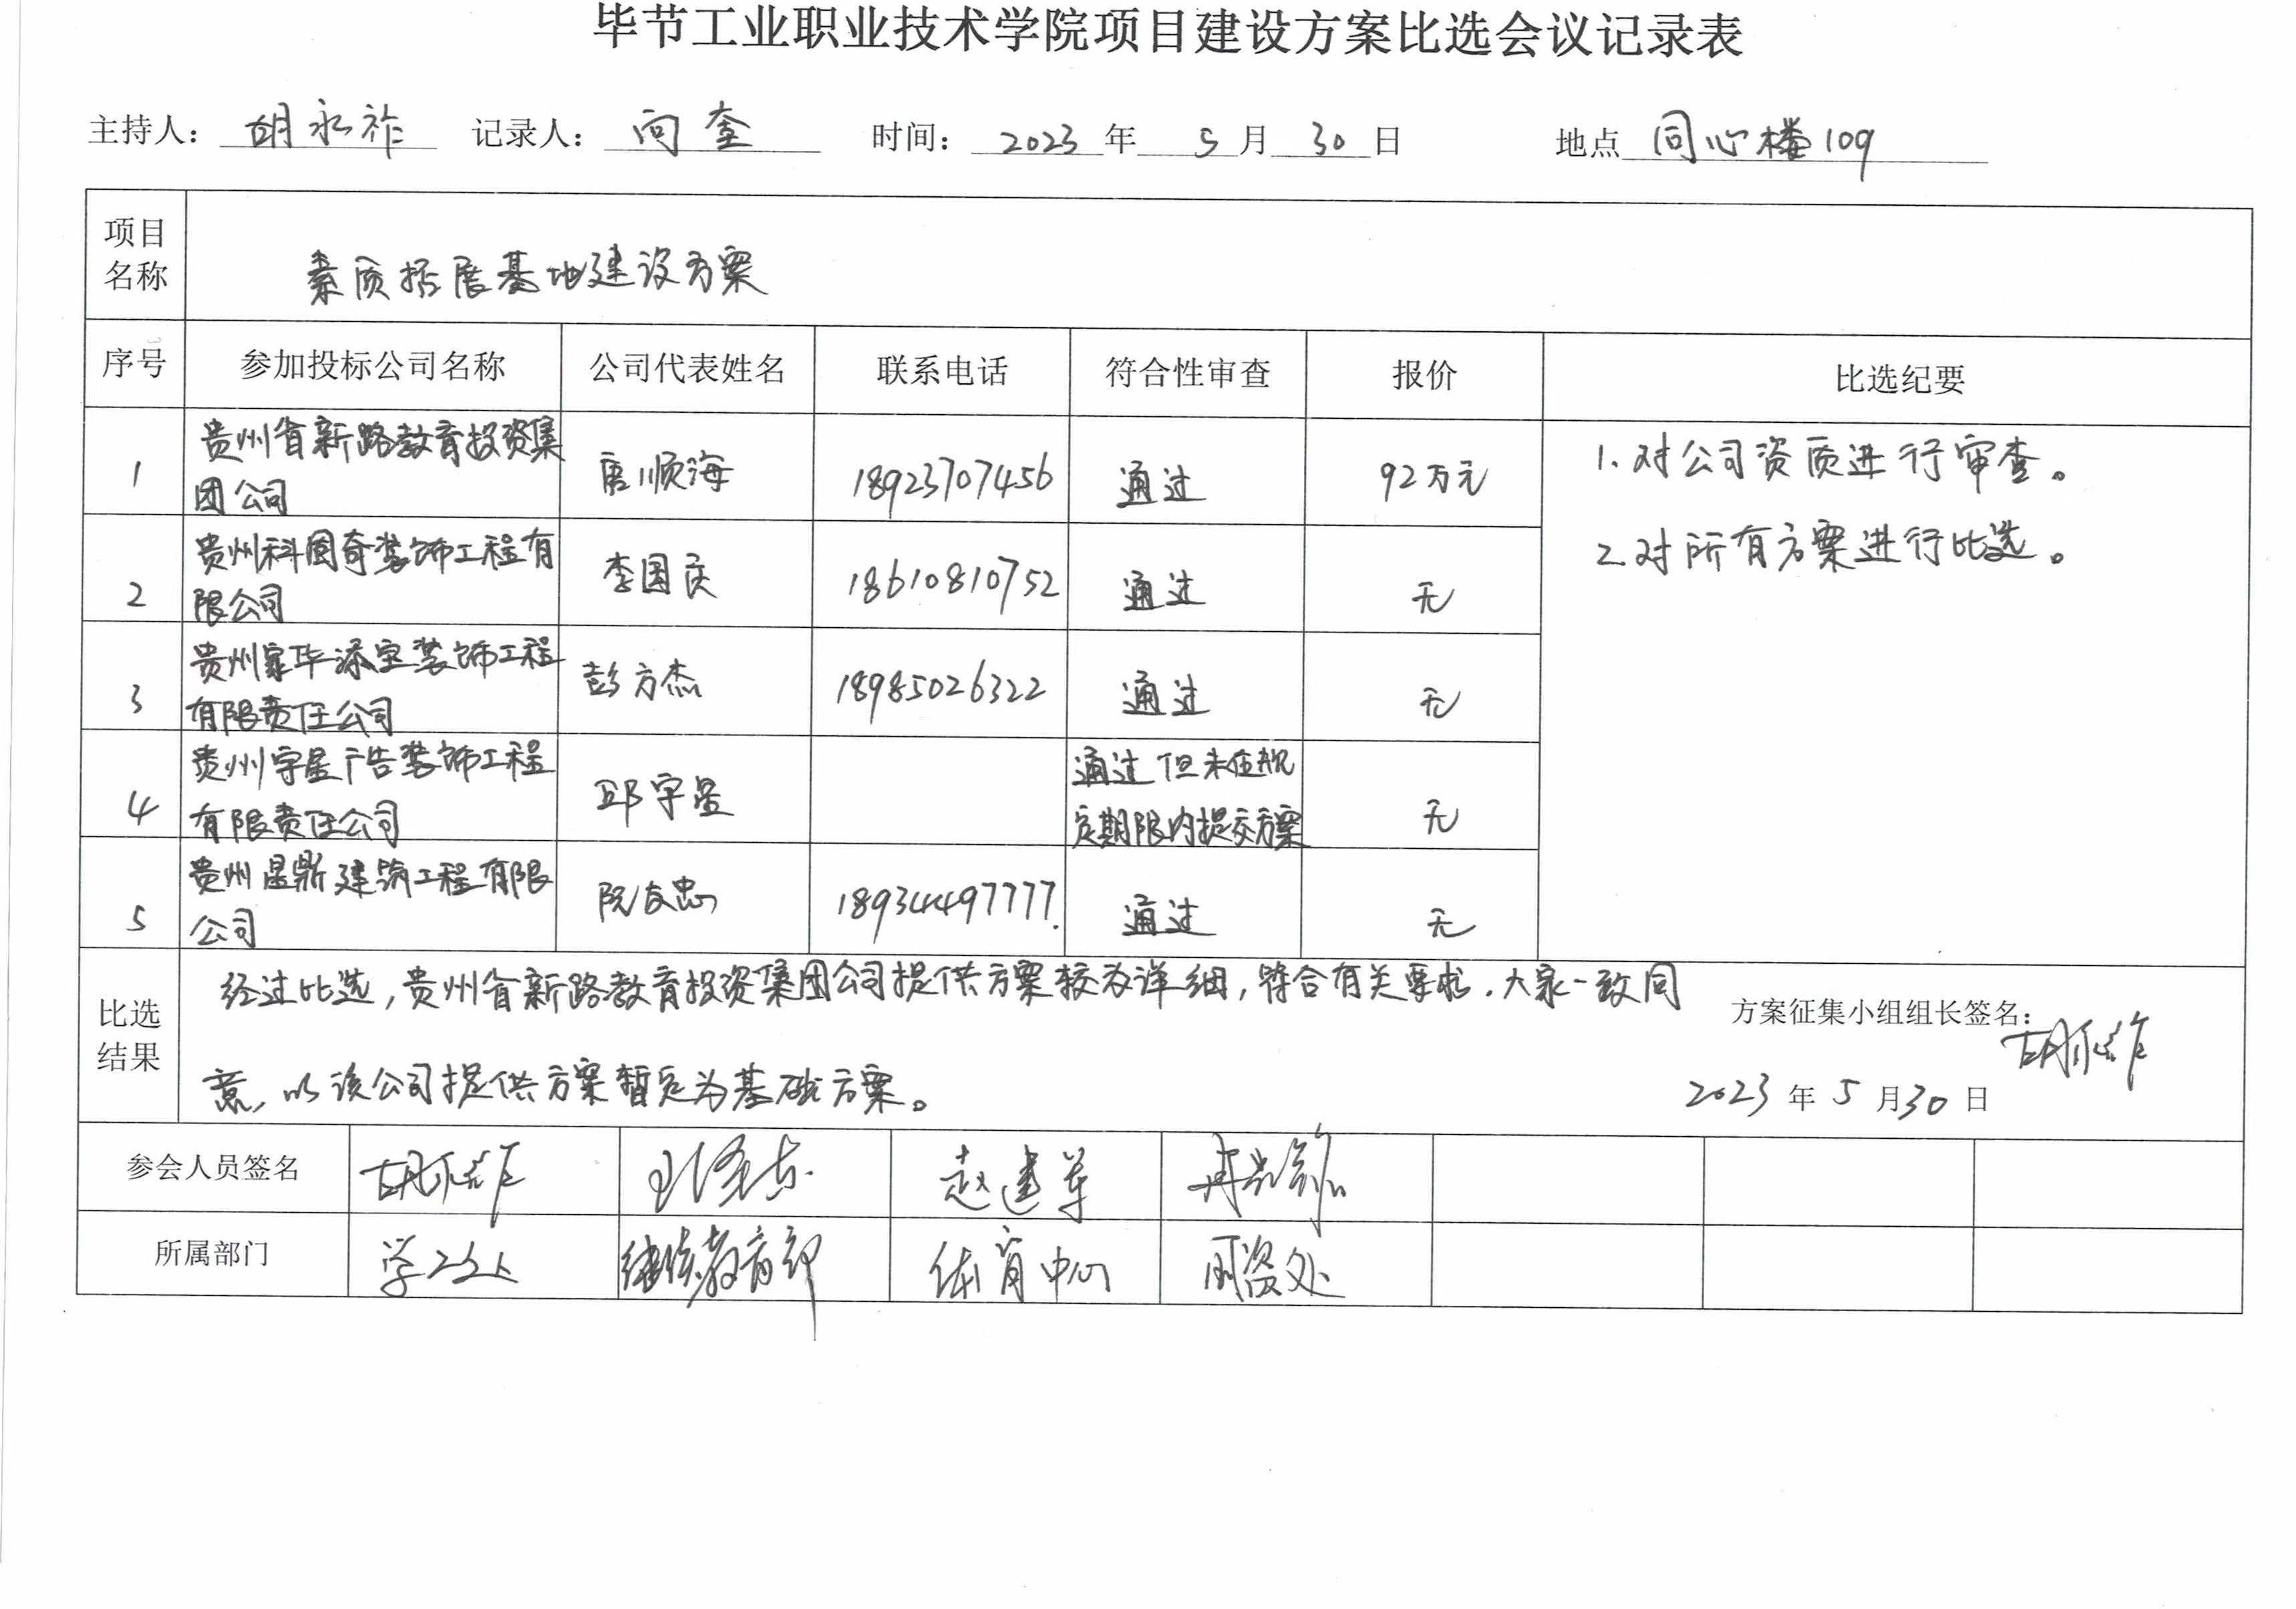 毕节工业职业技术学院项目建设方案比选会议记录表
主持人：胡永祚 记录人：向奎 时间：2023年5月30日 地点 同心楼109
项目
名称
素质拓展基地建设方案
序号 参加投标公司名称 公司代表姓名 联系电话 符合性审查 报价 比选纪要
1 贵州省新路教育投资集
团公司 唐顺海 18923707456 通过 92万元
1.对公司资质进行审查。
2.对所有方案进行比选。
2 贵州科图奇装饰工程有
限公司 李国庆 18610810752 通过 无
3 贵州豪华添宝装饰工程
有限责任公司 彭方杰 18985026322 通过 无
4 贵州宇星广告装饰工程
有限责任公司 邱宇星 通过但未在规
定期限内提交方案 无
5 贵州昆鼎建筑工程有限
公司 阮友忠 18934497777. 通过 无
比选
结果
经过比选,贵州省新路教育投资集团公司提供方案较为详细,符合有关要求.大家一致同
意,以该公司提供方案暂定为基础方案。
方案征集小组组长签名：胡永祚
2023年5月30日
参会人员签名 胡永祚 赵建军
所属部门 学工处 继续教育部 体育中心 国资处